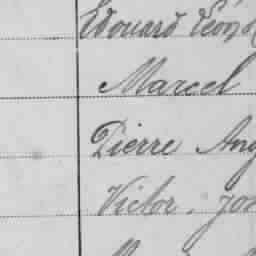 Edouard Léon
Marcel
Pierre Aug
Victor, Jos